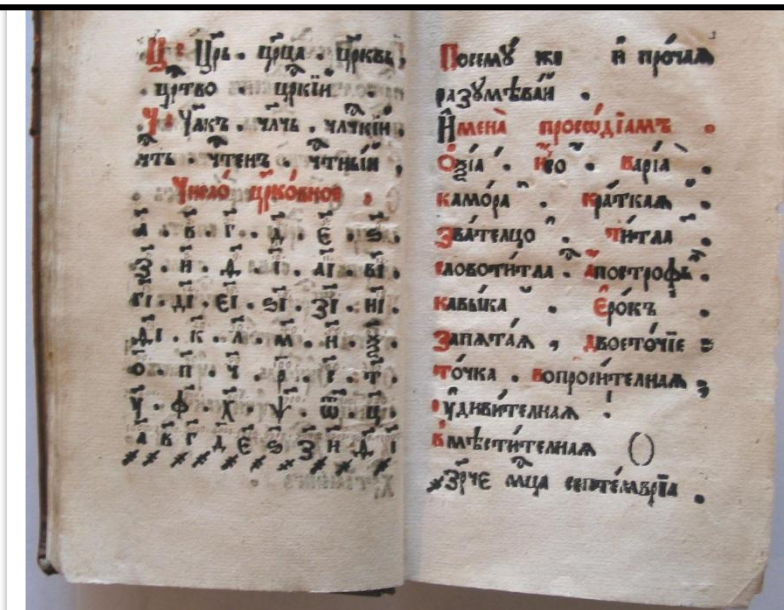 Ц: Цр҃ь. цр҃ца. цр҃квь,
. цр҃тво. цр҃кїи.
Ч: Чл҃къ. чл҃чь. чл҃чкїи.
чтенъ. чтныи,
Число̀ цр҃ко́вное.
а҃. в҃. г҃. д҃. є҃. ѕ҃.
з҃. и҃. ѳ҃. і҃. аі҃. ві҃.
гі҃. ді҃. єі҃. ѕі҃. зі҃. иі҃.
ѳі҃. к҃. л҃. м҃. н҃. ѯ҃.
о҃. п҃. ч҃. р҃. с҃. т҃.
у҃. ф҃. х҃. ѱ҃. ѿ҃. ц҃.
҂а ҂в ҂г ҂д ҂є ҂ѕ ҂з ҂и ҂ѳ ҂і
Посемꙋ́ же и҆ про́чаѧ
разꙋмѣва́й.
И҆мена̀ просѡді́амъ.
О҆ѯі́а ́. И҆́со ҆. Варі́а ̀.
камо́ра ̑. кра́ткаѧ ̆.
Зва́телцо ҆. ти́тла ҃.
словоти́тла. а҆по́строфь.
кавы́ка. Є҆ро́къ.
Запѧта́ѧ , двосто́чїе :
то́чка . вопроси́телнаѧ ;
ᲂу҆диви́телнаѧ !
вмѣсти́телнаѧ ()
҂зр҃че мц҃а септе́мврїа.